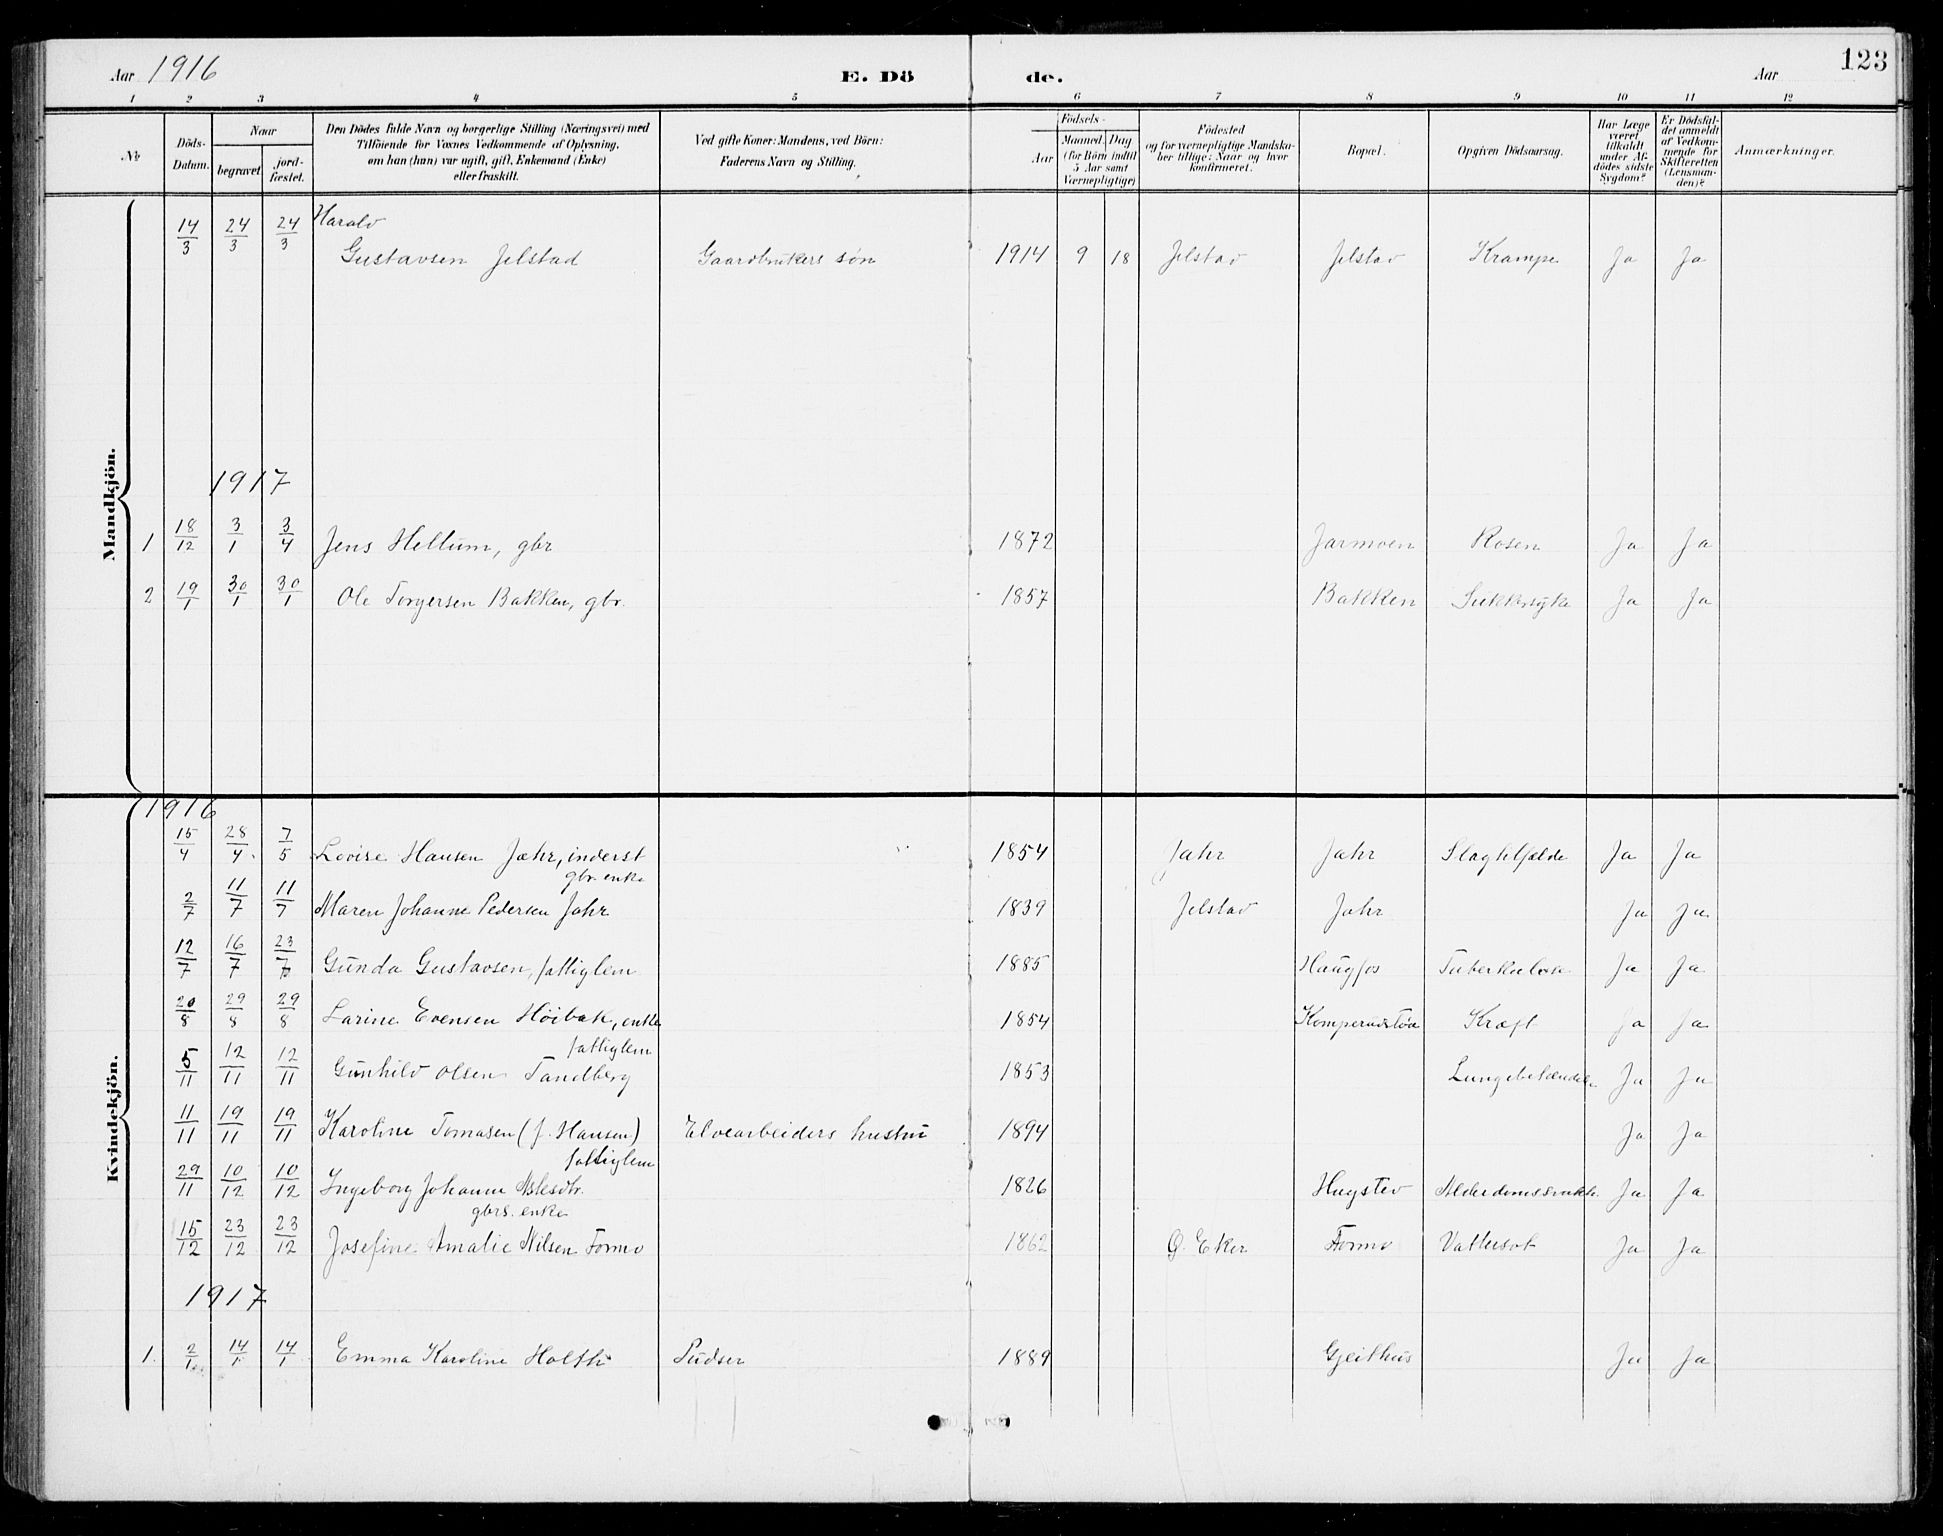 Aar 1916 E. Dö de. Aar 123
1 2 3 4 5 6 7 8 9 10 11 12
No Döds-Datum. Naar begravet jordfæstet. Den Dödes fulde Navn og borgerlige Stilling (Næringsvei) med Tilföiende for Voxnes Vedkommende af Oplysning, om han (hun) var ugift, gift, Enkemand (Enke) eller fraskilt. Ved gifte Koner: Mandens, ved Börn: Faderens Navn og Stilling. Födsels- Aar Maaned. Dag (for Börn indtil 5 Aar samt Værnepligtige) Födested og for værnepligtige Mandskaber tillige: Naar og hvor konfirmeret. Bopæl. Opgiven Dödsaarsag. Har Læge været tilkaldt under Afdödes sidste Sygdom? Er Dödsfaldet anmeldt af Vedkommende for Skifteretten (Lensmanden)? Anmærkninger.
Mandkjön.
14/3 24/3 24/3 Harald
Gustavsen Jelstad Gaardbrukers søn 1914 9 18 Jelstad Jelstad Krampe Ja Ja
1917
1 18/12 3/1 3/4 Jens Hellum, gbr 1872 Jarmoen Rosen Ja Ja
2 19/1 30/1 30/1 Ole Torgersen Bakken, gbr. 1857 Bakken Sukkersyke Ja Ja
Kvindekjön.
1916
15/4 28/4 7/5 Lovise Hansen Jahr, inderst 1854 Jahr Jahr Slagtilfælde Ja Ja
gbr. enke
2/7 11/7 11/7 Maren Johanne Pedersen Jahr 1839 Jelstad Jahr Ja Ja
12/7 16/7 23/7 Gunda Gustavsen, fattiglem 1885 Haugfos Tuberkulose Ja Ja
20/8 29/8 29/8 Larine Evensen Höibak, enke 1854 Kræft Ja Ja
fattiglem
5/11 12/11 12/11 Gunhild Olsen Tandberg 1853 Ja Ja
11/11 19/11 19/11 Karoline Tomasen (f. Hansen) Elvearbeiders hustru 1894 Ja Ja
fattiglem
29/11 10/12 10/12 Ingeborg Johanne Aslesdtr. 1826 Hugsted Ja Ja
gbrs. enke
15/12 23/12 23/12 Josefine Amalie Nilsen Formo 1862 Ø. Eker Formo Vattersot Ja Ja
1917
1. 2/1 14/1 14/1 Emma Karoline Holth Pudser 1889 Gjeithus Ja Ja